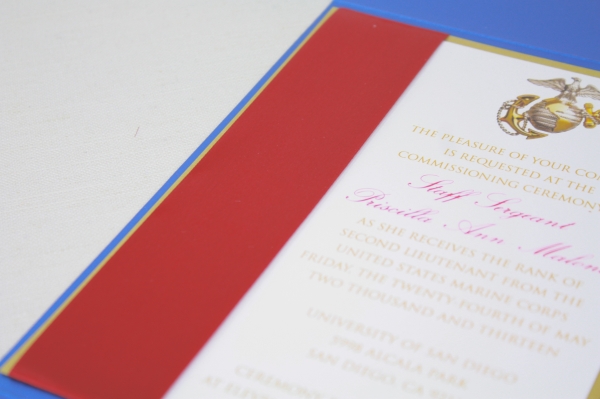 THE PLEASURE OF YOUR
IS REQUESTED AT THE
COMMISSIONING CEREMONY
Staff Sergeant
Priscilla Ann
AS SHE RECEIVES THE RANK OF
SECOND LIEUTENANT FROM THE
UNITED STATES MARINE CORPS
FRIDAY, THE TWENTY FOURTH OF MAY
TWO THOUSAND AND THIRTEEN
UNIVERSITY OF SAN DIEGO
5998 ALCALA PARK
SAN DIEGO, CA
CEREMONY